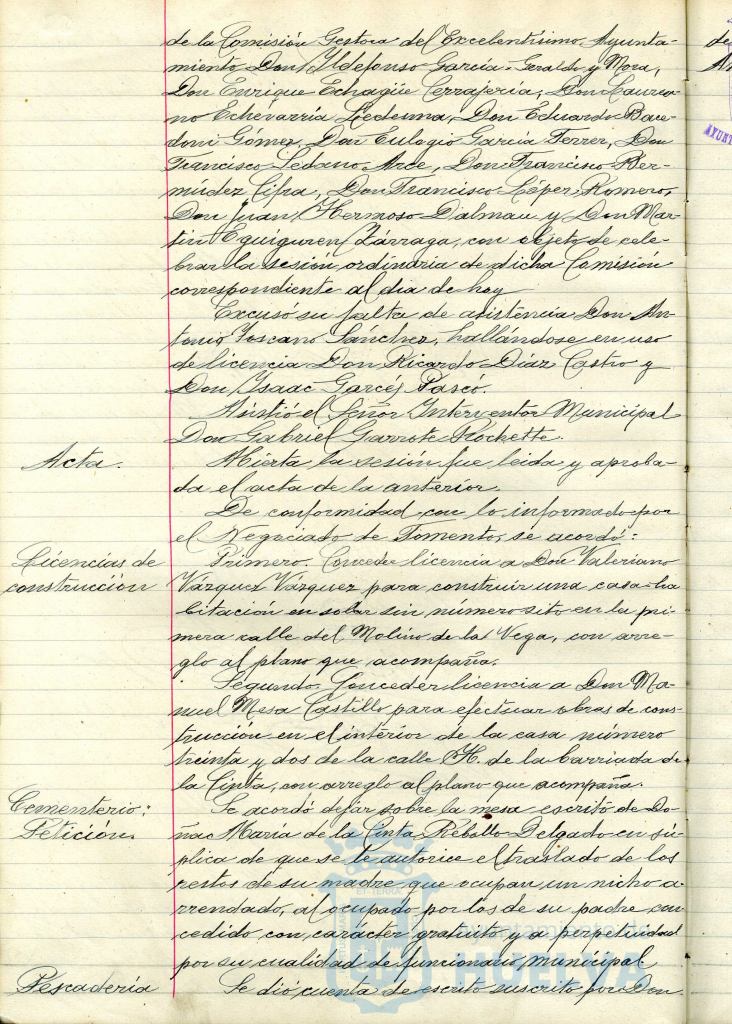 de la Comisión Gestora del Excelentísimo Ayunta-
miento Don Ildefonso García-Geraldo y Mora,
Don Enrique Echagüe Cerrapería, Don Laurea-
no Echévarría Ledesma, Don Eduardo Bace-
doni Gómez, Don Eulogio García Ferrer, Don
Francisco Sedano Arce, Don Francisco Ber-
múdez Cifra, Don Francisco López Romero,
Don Juan Hermoso Dalmau y Don Mar-
tín Eguiguren Zárraga, con objeto de cele-
brar la sesión ordinaria de dicha Comisión
correspondiente al dia de hoy
Excusó su falta de asistencia Don An-
tonio Toscano Sánchez, hallándose en uso
de licencia Don Ricardo Díaz Castro y
Don Isaac Garcés Pasco.
Asistió el Señor Interventor Municipal
Don Gabriel Garrote Rochette.
Acta.
Abierta la sesión fue leida y aproba-
da el acta de la anterior.
De conformidad con lo informado por
el Negociado de Fomento, se acordó:
Licencias de
construcción
Primero. Conceder licencia a Don Valeriano
Vázquez Vázquez para construir una casa-ha
bitación en solar sin número sito en la pri-
mera calle del Molino de la Vega, con arre-
glo al plano que acompaña.
Segundo. Conceder licencia a Don Ma-
nuel Mesa Castillo para efectuar obras de cons-
trucción en el interior de la casa número
treinta y dos de la calle H. de la barriada de
la Cinta, con arreglo al plano que acompaña.
Cementerio:
Petición.
Se acordó dejar sobre la mesa escrito de Do-
ña María de la Cinta Rebollo Delgado en sú-
plica de que se le autorice el traslado de los
restos de su madre que ocupan un nicho a-
rrendado, al ocupado por los de su padre con-
cedido con carácter gratuito y a perpetuidad
por su cualidad de funcionario municipal
Pescadería
Se dió cuenta de escrito suscrito por Don
HUELVA